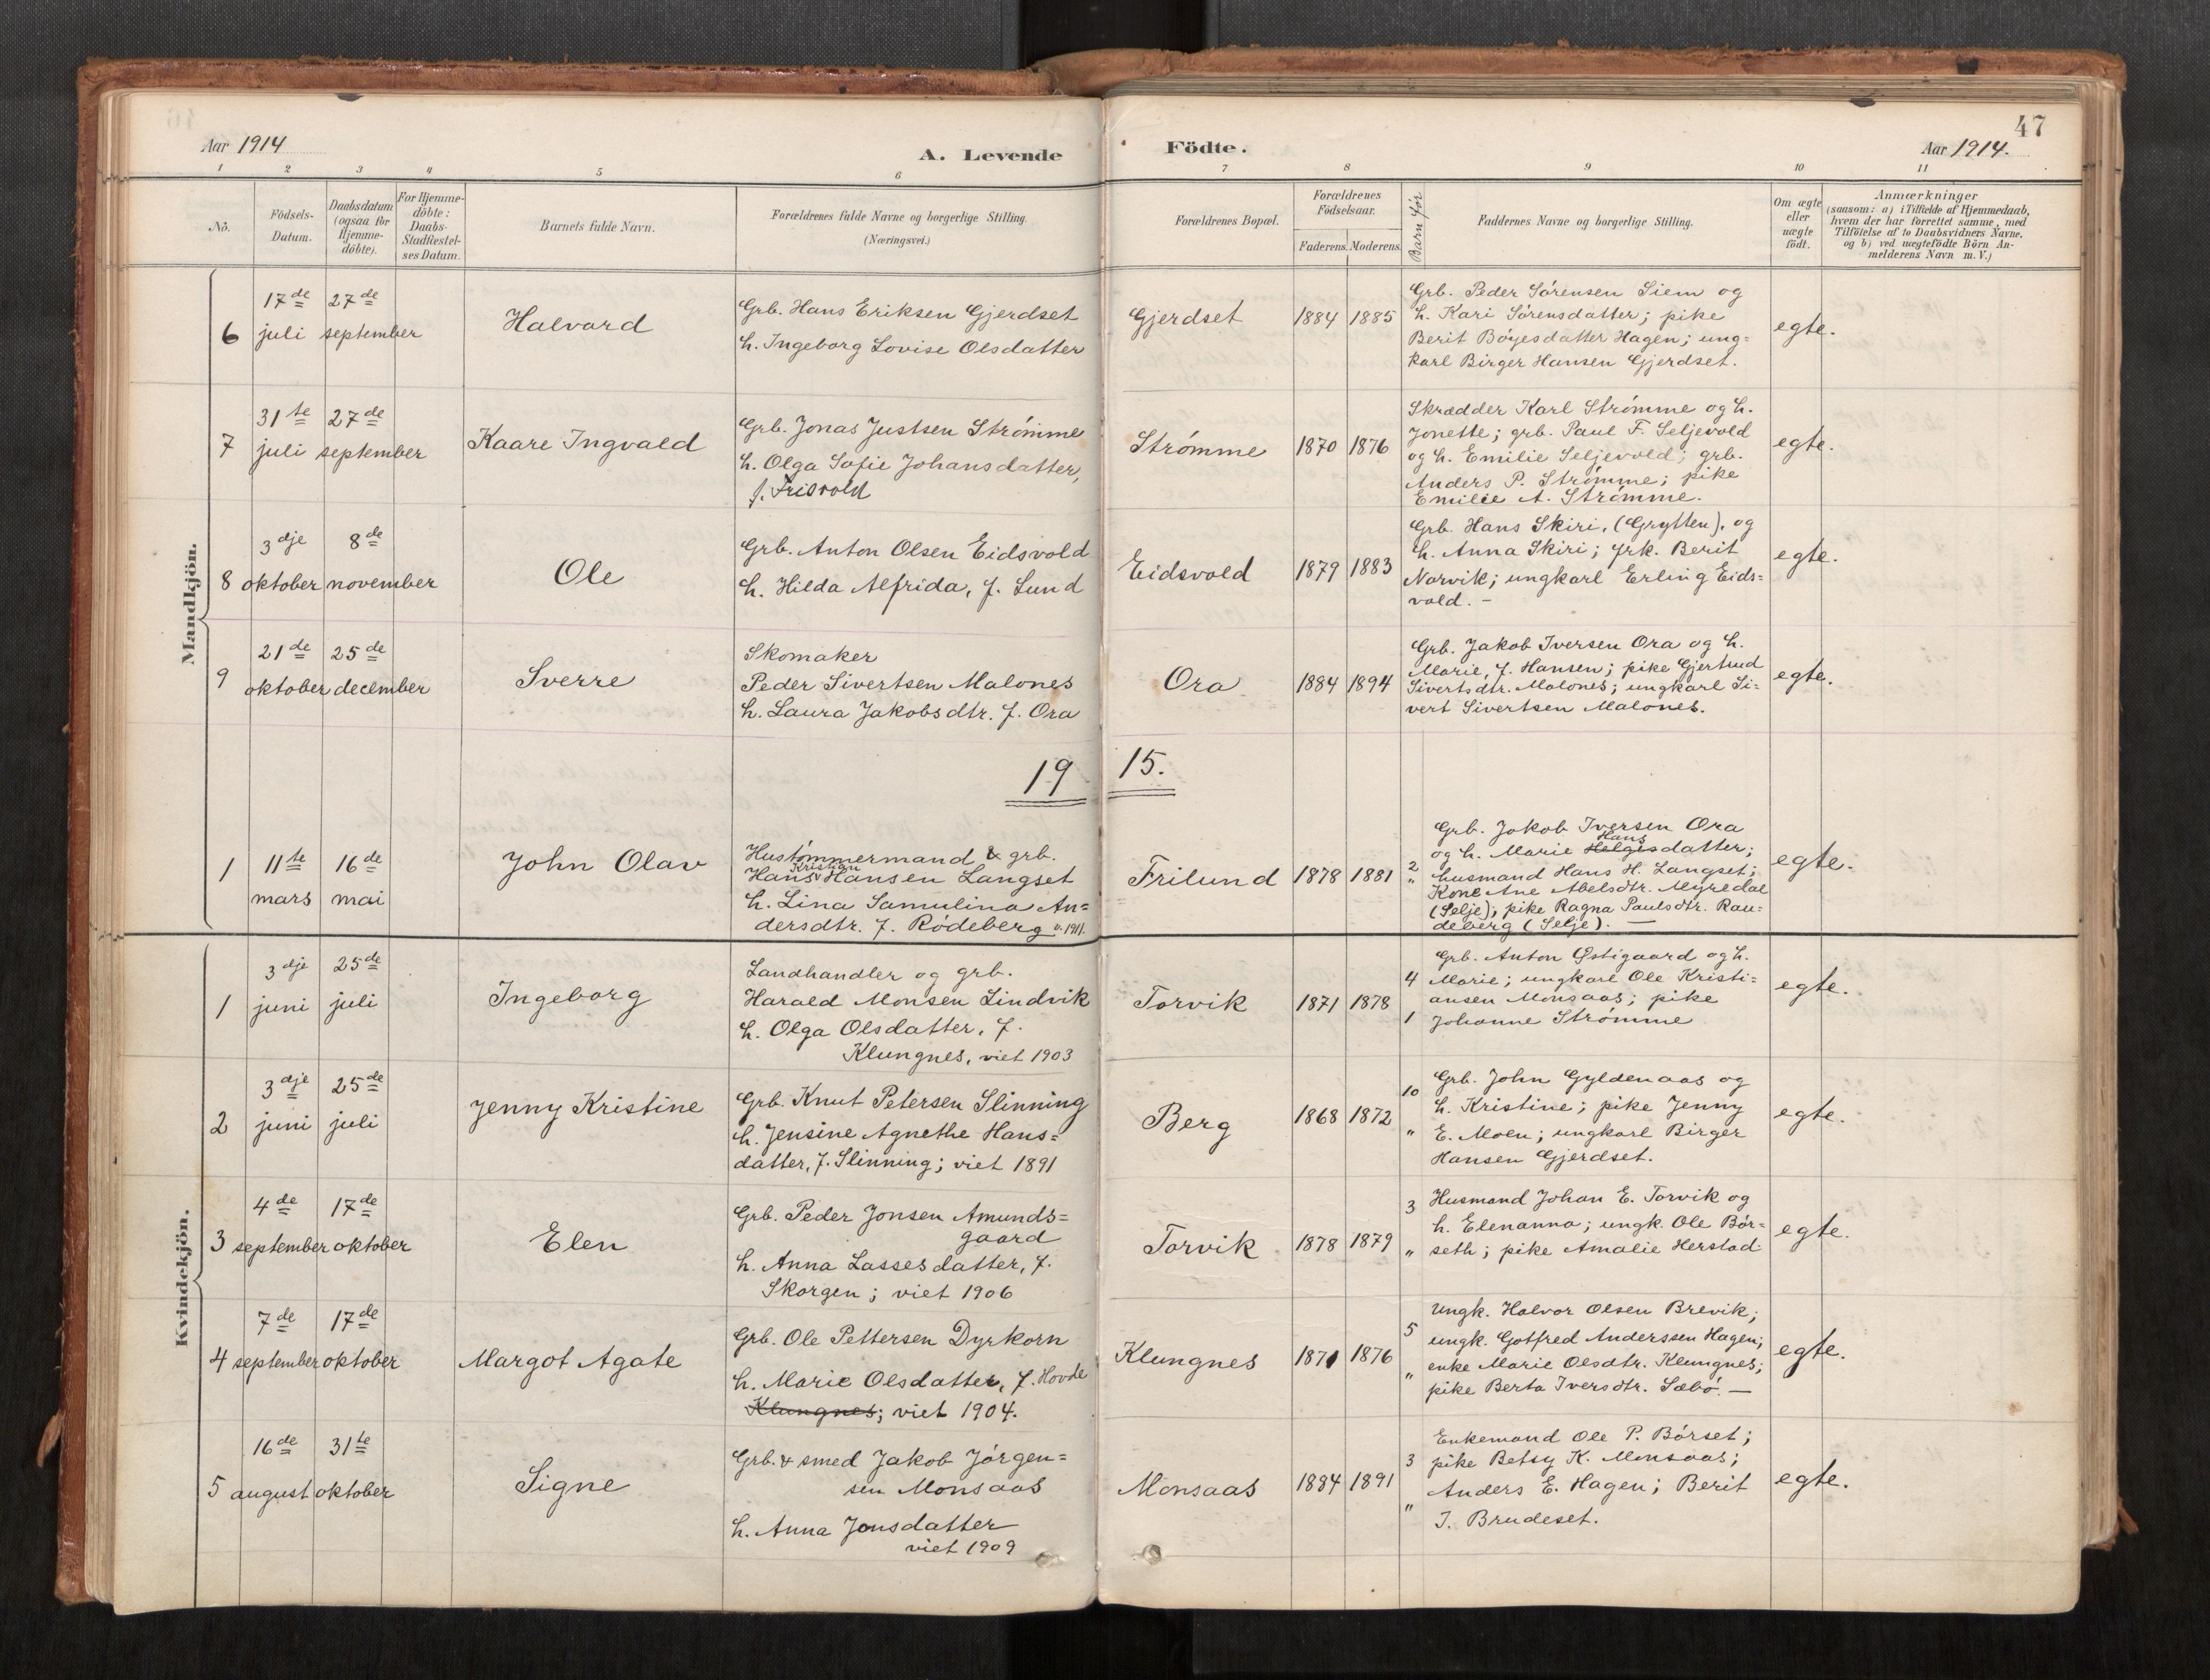 47
Aar 1914
A. Levende
Födte.
Aar 1914.
1 2 3 4 5 6 7 8 9 10 11
Nô.
Födsels-
Datum.
Daabsdatum
(ogsaa for
Hjemme-
döbte).
For Hjemme-
döbte:
Daabs-
Stadfæstel-
ses Datum.
Barnets fulde Navn.
Forældrenes fulde Navne og borgerlige Stilling.
(Næringsvei.)
Forældrenes Bopæl.
Forældrenes
Födselsaar.
Faderens. Moderens.
Barn før
Faddernes Navne og borgerlige Stilling.
Om ægte
eller
uægte
födt.
Anmærkninger
(saasom: a) i Tilfælde af Hjemmedaab,
hvem der har forrettet samme, med
Tilföielse af to Daabsvidners Navne,
og b) ved uægtefödte Börn An-
melderens Navn m. V.)
Mandkjön.
6
17de juli
27de september
Halvard
Grb. Hans Eriksen Gjerdset
h. Ingeborg Lovise Olsdatter
Gjerdset
1884 1885
Grb. Peder Sørensen Siem og
h. Kari Sørensdatter; pike
Berit Bøyesdatter Hagen; ung=
karl Birger Hansen Gjerdset.
egte.
7
31te juli
27de september
Kaare Ingvald
Grb. Jonas Justsen Strømme
h. Olga Sofie Johansdatter,
f. Frisvold
Strømme
1870 1876
Skrædder Karl Strømme og h.
Jonette; grb. Paul F. Seljevold
og h. Emilie Seljevold; grb.
Anders P. Strømme; pike
Emilie A. Strømme.
egte.
8
3dje oktober
8de november
Ole
Grb. Anton Olsen Eidsvold
h. Hilda Alfrida, f. Lund
Eidsvold
1879 1883
Grb. Hans Skiri, (Grytten), og
h. Anna Skiri; frk. Berit
Norvik; ungkarl Erling Eids=
vold. -
egte.
9
21de oktober
25de december
Sverre
Skomaker
Peder Sivertsen Malones
h. Laura Jakobsdtr. f. Ora
Ora
1884 1894
Grb. Jakob Iversen Ora og h.
Marie, f. Hansen; pike Gjertrud
Sivertsdtr. Malones; ungkarl Si=
vert Sivertsen Malones.
egte.
19 15.
1
11te mars
16de mai
John Olav
Hustømmermand & grb.
Kristian
Hans Hansen Langset
h. Lina Samulina An=
dersdtr. f. Rødeberg v. 1911.
Frilund
1878 1881
2
"
Grb. Jakob Iversen Ora
Hans
og h. Marie Helgisdatter;
husmand Hans H. Langset;
Kone Ane Abelsdtr. Myredal
(Selje); pike Ragna Paulsdtr. Rau=
deberg (Selje). —
egte.
Kvindekjön.
1
3dje juni
25de juli
Ingeborg
Landhandler og grb.
Harald Monsen Lindvik
h. Olga Olsdatter, f.
Klungnes, viet 1903
Torvik
1871 1878
4
1
Grb. Anton Østigaard og h.
Marie; ungkarl Ole Kristi=
ansen Monsaas; pike
Johanne Strømme
egte.
2
3dje juni
25de juli
Jenny Kristine
Grb. Knut Petersen Slinning
h. Jensine Agnethe Hans=
datter, f. Slinning; viet 1891
Berg
1868 1872
10
"
Grb. John Gyldenaas og
h. Kristine; pike Jenny
E. Moen; ungkarl Birger
Hansen Gjerdset.
egte.
3
4de september
17de oktober
Elen
Grb. Peder Jonsen Amunds=
gaard
h. Anna Lassesdatter, f.
Skorgen; viet 1906
Torvik
1878 1879
3
"
Husmand Johan E. Torvik og
h. Elenanna; ungk. Ole Bør=
seth; pike Amalie Herstad
egte.
4
7de september
17de oktober
Margot Agate
Grb. Ole Pettersen Dyrkorn
h. Marie Olsdatter, f. Hovde
Klungnes; viet 1904.
Klungnes
1871 1876
5
"
Ungk. Halvor Olsen Brevik;
ungk. Gotfred Anderssen Hagen;
enke Marie Olsdtr. Klungnes;
pike Berta Iversdtr. Sæbø. —
egte.
5
16de august
31te oktober
Signe
Grb. & smed Jakob Jørgen=
sen Monsaas
h. Anna Jonsdatter
viet 1909
Monsaas
1884 1891
3
"
Enkemand Ole P. Børset;
pike Betsy K. Monsaas;
Anders E. Hagen; Berit
J. Brudeset.
egte.